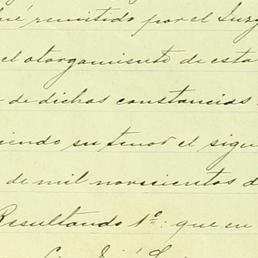 fué remitido por el Juzg
el otorgamiento de esta
de dichas constancias
iendo su tenor el sigue
de mil novecientos d
Resultando 1º: que en